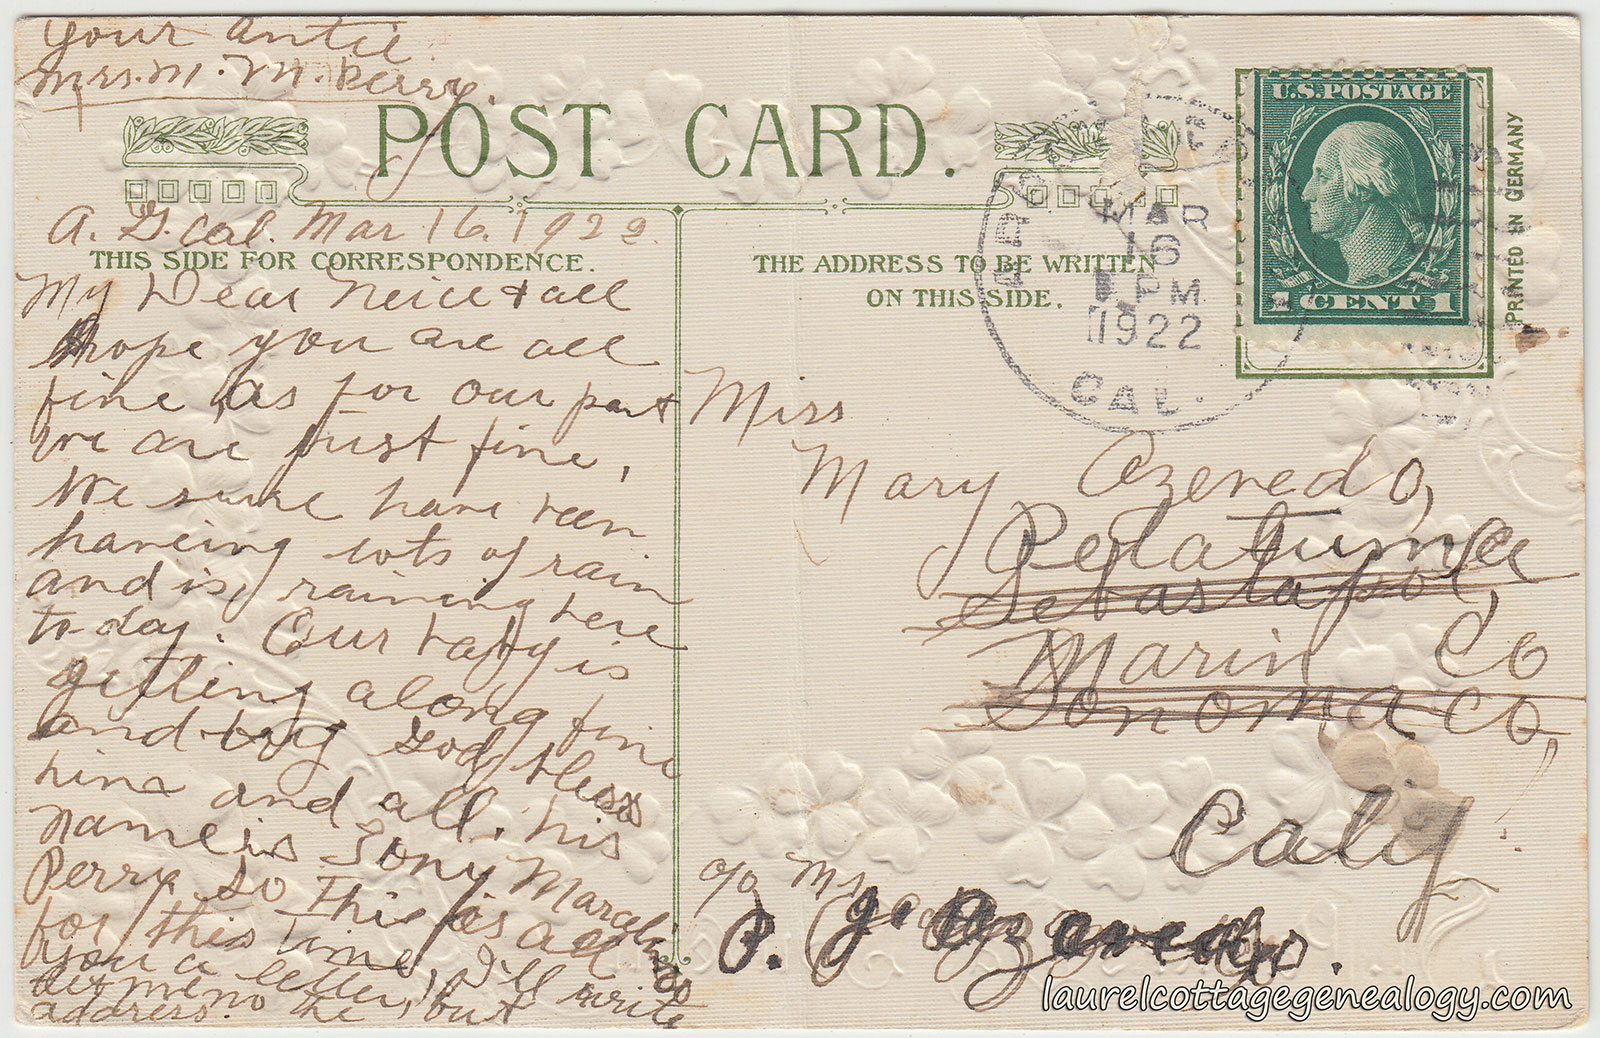 your antie
Mrs. M. M. Perry.
POST CARD.
U.S. POSTAGE
1 CENT 1
PRINTED IN GERMANY
MAR
16
PM
1922
CAL.
A. G. Cal. Mar 16. 1922.
THIS SIDE FOR CORRESPONDENCE.
THE ADDRESS TO BE WRITTEN
ON THIS SIDE.
My Dear Neice & all
hope you are all
fine, as for our part
we are just fine,
We sure have been
haveing lots of rain
and is raining here
to-day. Our baby is
getting along fine
and big God bless
him and all. his
name is Tony Marcelino
Perry. so This is all
for this time, I'll write
you a letter, but
let me no the
address.
Miss
Mary Azevedo,
Petatuma
Sebastapol,
Marin Co
Sonoma Co,
Calif
c/o Mr
P. J. Azevedo.
laurelcottagegenealogy.com